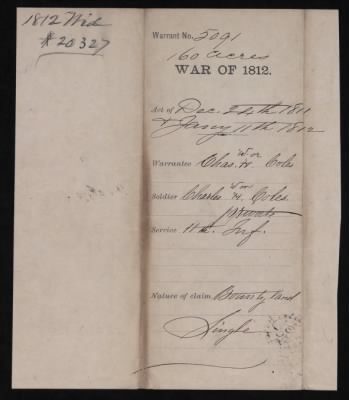 1812 Wid
# 20327
Warrant No. 5091
160 acres
WAR OF 1812.
Act of Dec. 24th 1811
& Jany 11th 1812
W or
Warrantee Chas. H. Cols
W or
Soldier Charles H. Coles
private
Service 11th Inf.
Nature of claim Bounty land
Single